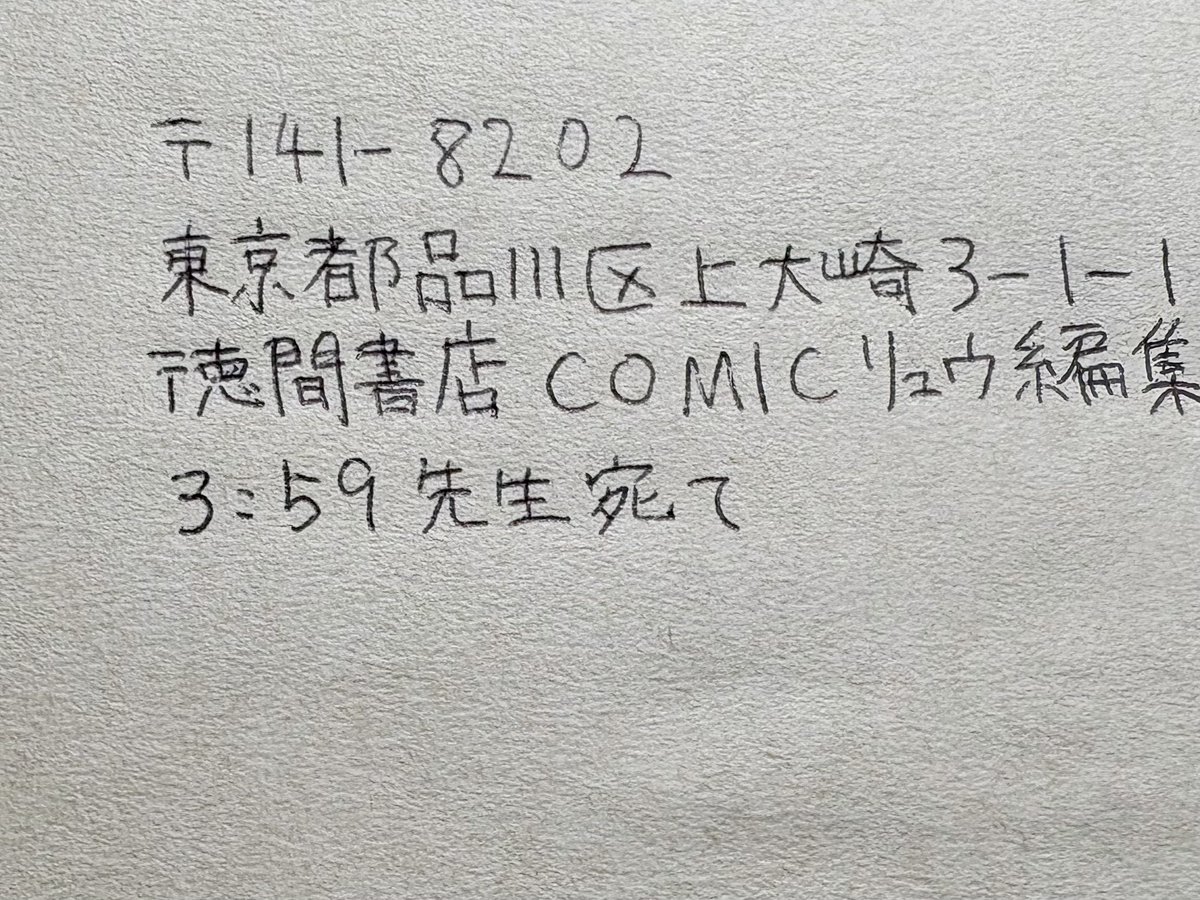 〒141-8202
東京都品川区上大崎3-1-1
徳間書店 COMICリュウ編集
3:59先生宛て